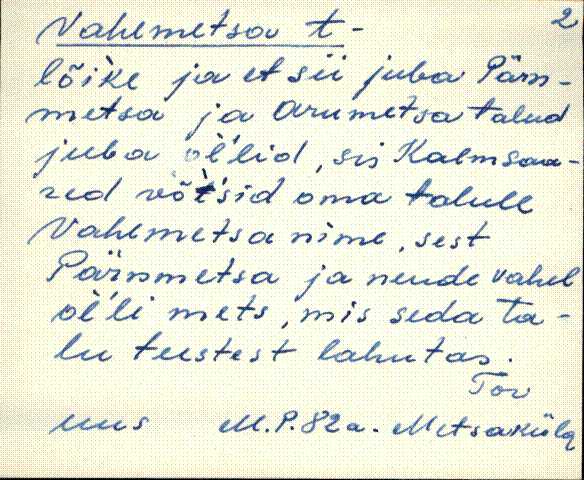 2
Vahemetsa t-
lõike ja et sii juba Pärn-
metsa ja Arumetsa talud
juba öĺlid, sis Kalmsaa-
red võt́sid oma talule
Vahemetsa nime, sest
Pärnmetsa ja nende vahel
öĺli mets, mis seda ta-
lu teistest lahutas.
Tor
uus M.P. 82 a. Metsaküla